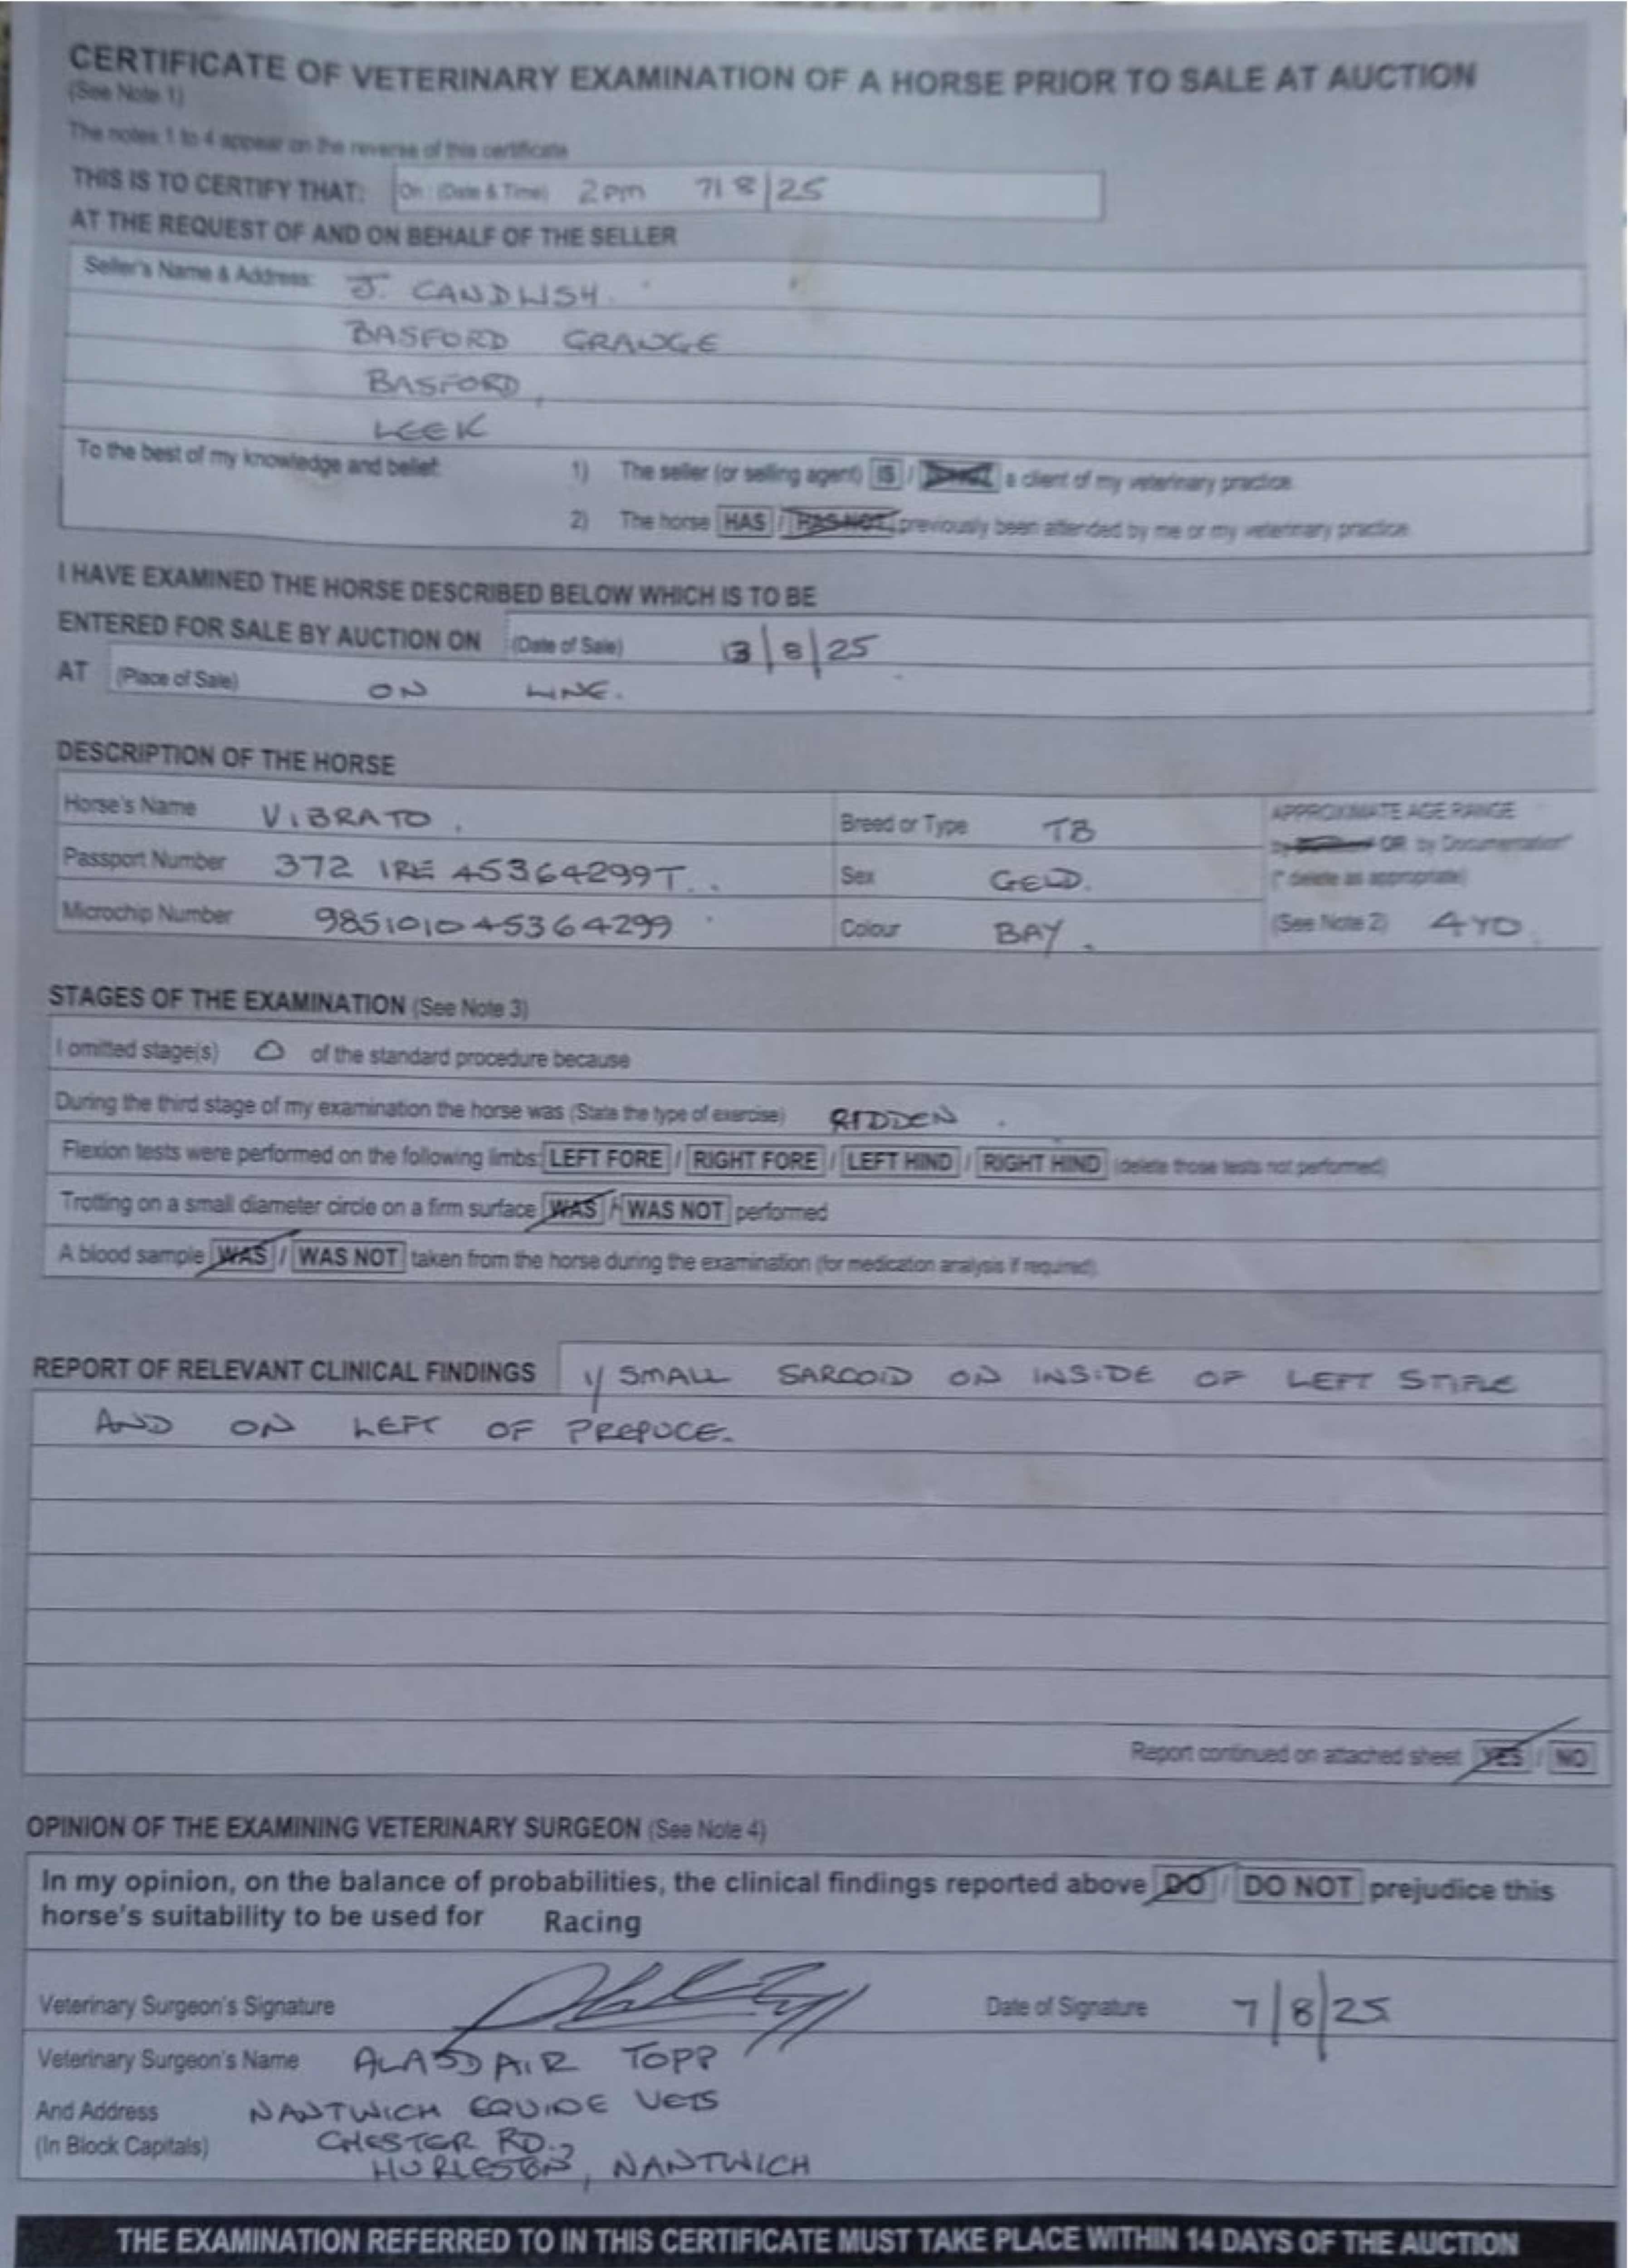 CERTIFICATE OF VETERINARY EXAMINATION OF A HORSE PRIOR TO SALE AT AUCTION
(See Note 1)
The notes 1 to 4 appear on the reverse of this certificate
THIS IS TO CERTIFY THAT: On : (Date & Time) 2pm 7/8/25
AT THE REQUEST OF AND ON BEHALF OF THE SELLER
Seller's Name & Address: J. CANDLISH.
BASFORD GRANGE
BASFORD,
LEEK
To the best of my knowledge and belief: 1) The seller (or selling agent) IS / IS NOT a client of my veterinary practice.
2) The horse HAS / HAS NOT previously been attended by me or my veterinary practice.
I HAVE EXAMINED THE HORSE DESCRIBED BELOW WHICH IS TO BE
ENTERED FOR SALE BY AUCTION ON (Date of Sale) 13/8/25
AT (Place of Sale) ON LINE.
DESCRIPTION OF THE HORSE
Horse's Name VIBRATO. Breed or Type TB APPROXIMATE AGE RANGE
by OR by Documentation*
Passport Number 372 IRE 45364299T.. Sex GELD. (* delete as appropriate)
Microchip Number 985101045364299 Colour BAY. (See Note 2) 4YO.
STAGES OF THE EXAMINATION (See Note 3)
I omitted stage(s) O of the standard procedure because
During the third stage of my examination the horse was (State the type of exercise) RIDDEN.
Flexion tests were performed on the following limbs: LEFT FORE / RIGHT FORE / LEFT HIND / RIGHT HIND (delete those tests not performed)
Trotting on a small diameter circle on a firm surface WAS / WAS NOT performed
A blood sample WAS / WAS NOT taken from the horse during the examination (for medication analysis if required).
REPORT OF RELEVANT CLINICAL FINDINGS 1/ SMALL SARCOID ON INSIDE OF LEFT STIFLE
AND ON LEFT OF PREPUCE.
Report continued on attached sheet YES / NO
OPINION OF THE EXAMINING VETERINARY SURGEON (See Note 4)
In my opinion, on the balance of probabilities, the clinical findings reported above DO / DO NOT prejudice this
horse's suitability to be used for Racing
Veterinary Surgeon's Signature Date of Signature 7/8/25
Veterinary Surgeon's Name ALASDAIR TOPP
And Address NANTWICH EQUINE VETS
(In Block Capitals) CHESTER RD.,
HURLESTON, NANTWICH
THE EXAMINATION REFERRED TO IN THIS CERTIFICATE MUST TAKE PLACE WITHIN 14 DAYS OF THE AUCTION